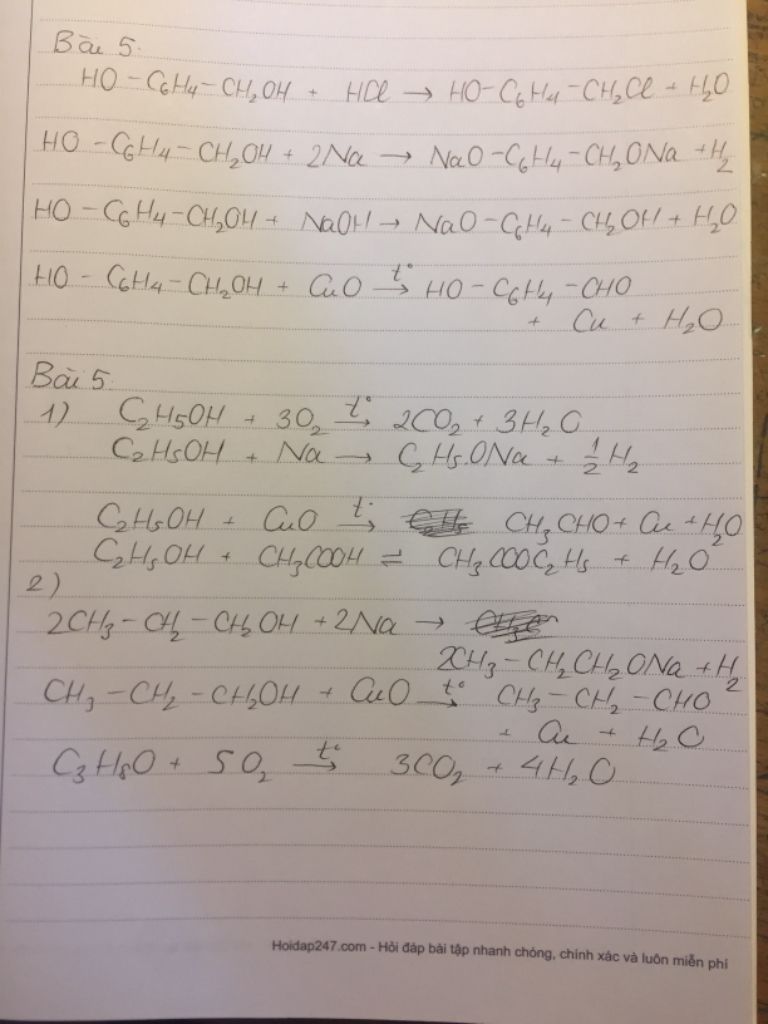 Bài 5.
HO-C6H4-CH2OH + HCl → HO-C6H4-CH2Cl + H2O
HO-C6H4-CH2OH + 2Na → NaO-C6H4-CH2ONa + H2
HO-C6H4-CH2OH + NaOH → NaO-C6H4-CH2OH + H2O
HO-C6H4-CH2OH + CuO t°→ HO-C6H4-CHO
+ Cu + H2O
Bài 5.
1) C2H5OH + 3O2 t°→ 2CO2 + 3H2O
C2H5OH + Na → C2H5ONa + 1/2 H2
C2H5OH + CuO t°→ CH3CHO + Cu + H2O
C2H5OH + CH3COOH ⇌ CH3COOC2H5 + H2O
2)
2CH3-CH2-CH2OH + 2Na →
2CH3-CH2CH2ONa + H2
CH3-CH2-CH2OH + CuO t°→ CH3-CH2-CHO
+ Cu + H2O
C3H8O + 5O2 t°→ 3CO2 + 4H2O
Hoidap247.com - Hỏi đáp bài tập nhanh chóng, chính xác và luôn miễn phí